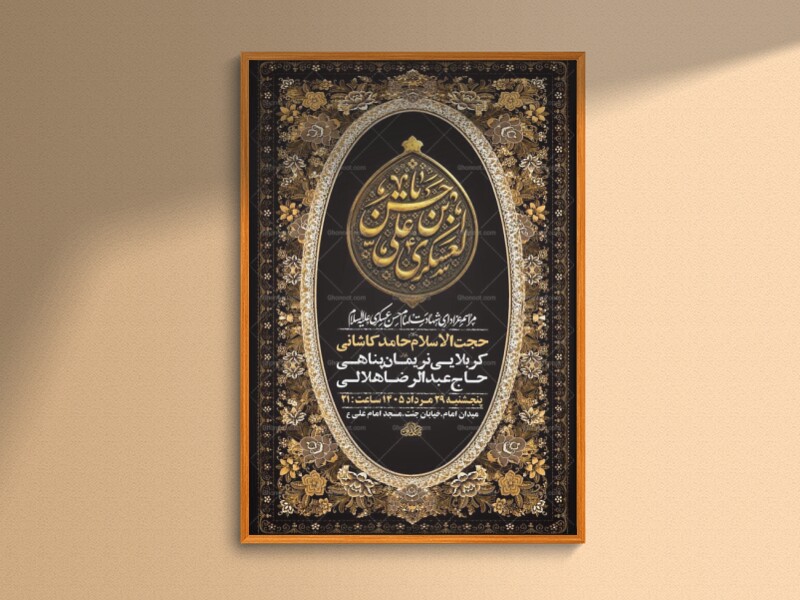 یا حسن بن علی العسکری
مراسم عزاداری شهادت امام حسن عسکری علیه السلام
حجت الاسلام حامد کاشانی
کربلایی نریمان پناهی
حاج عبدالرضا هلالی
پنجشنبه ۲۹ مرداد ۱۴۰۵ ساعت: ۲۱
میدان امام، خیابان جنت، مسجد امام علی ع